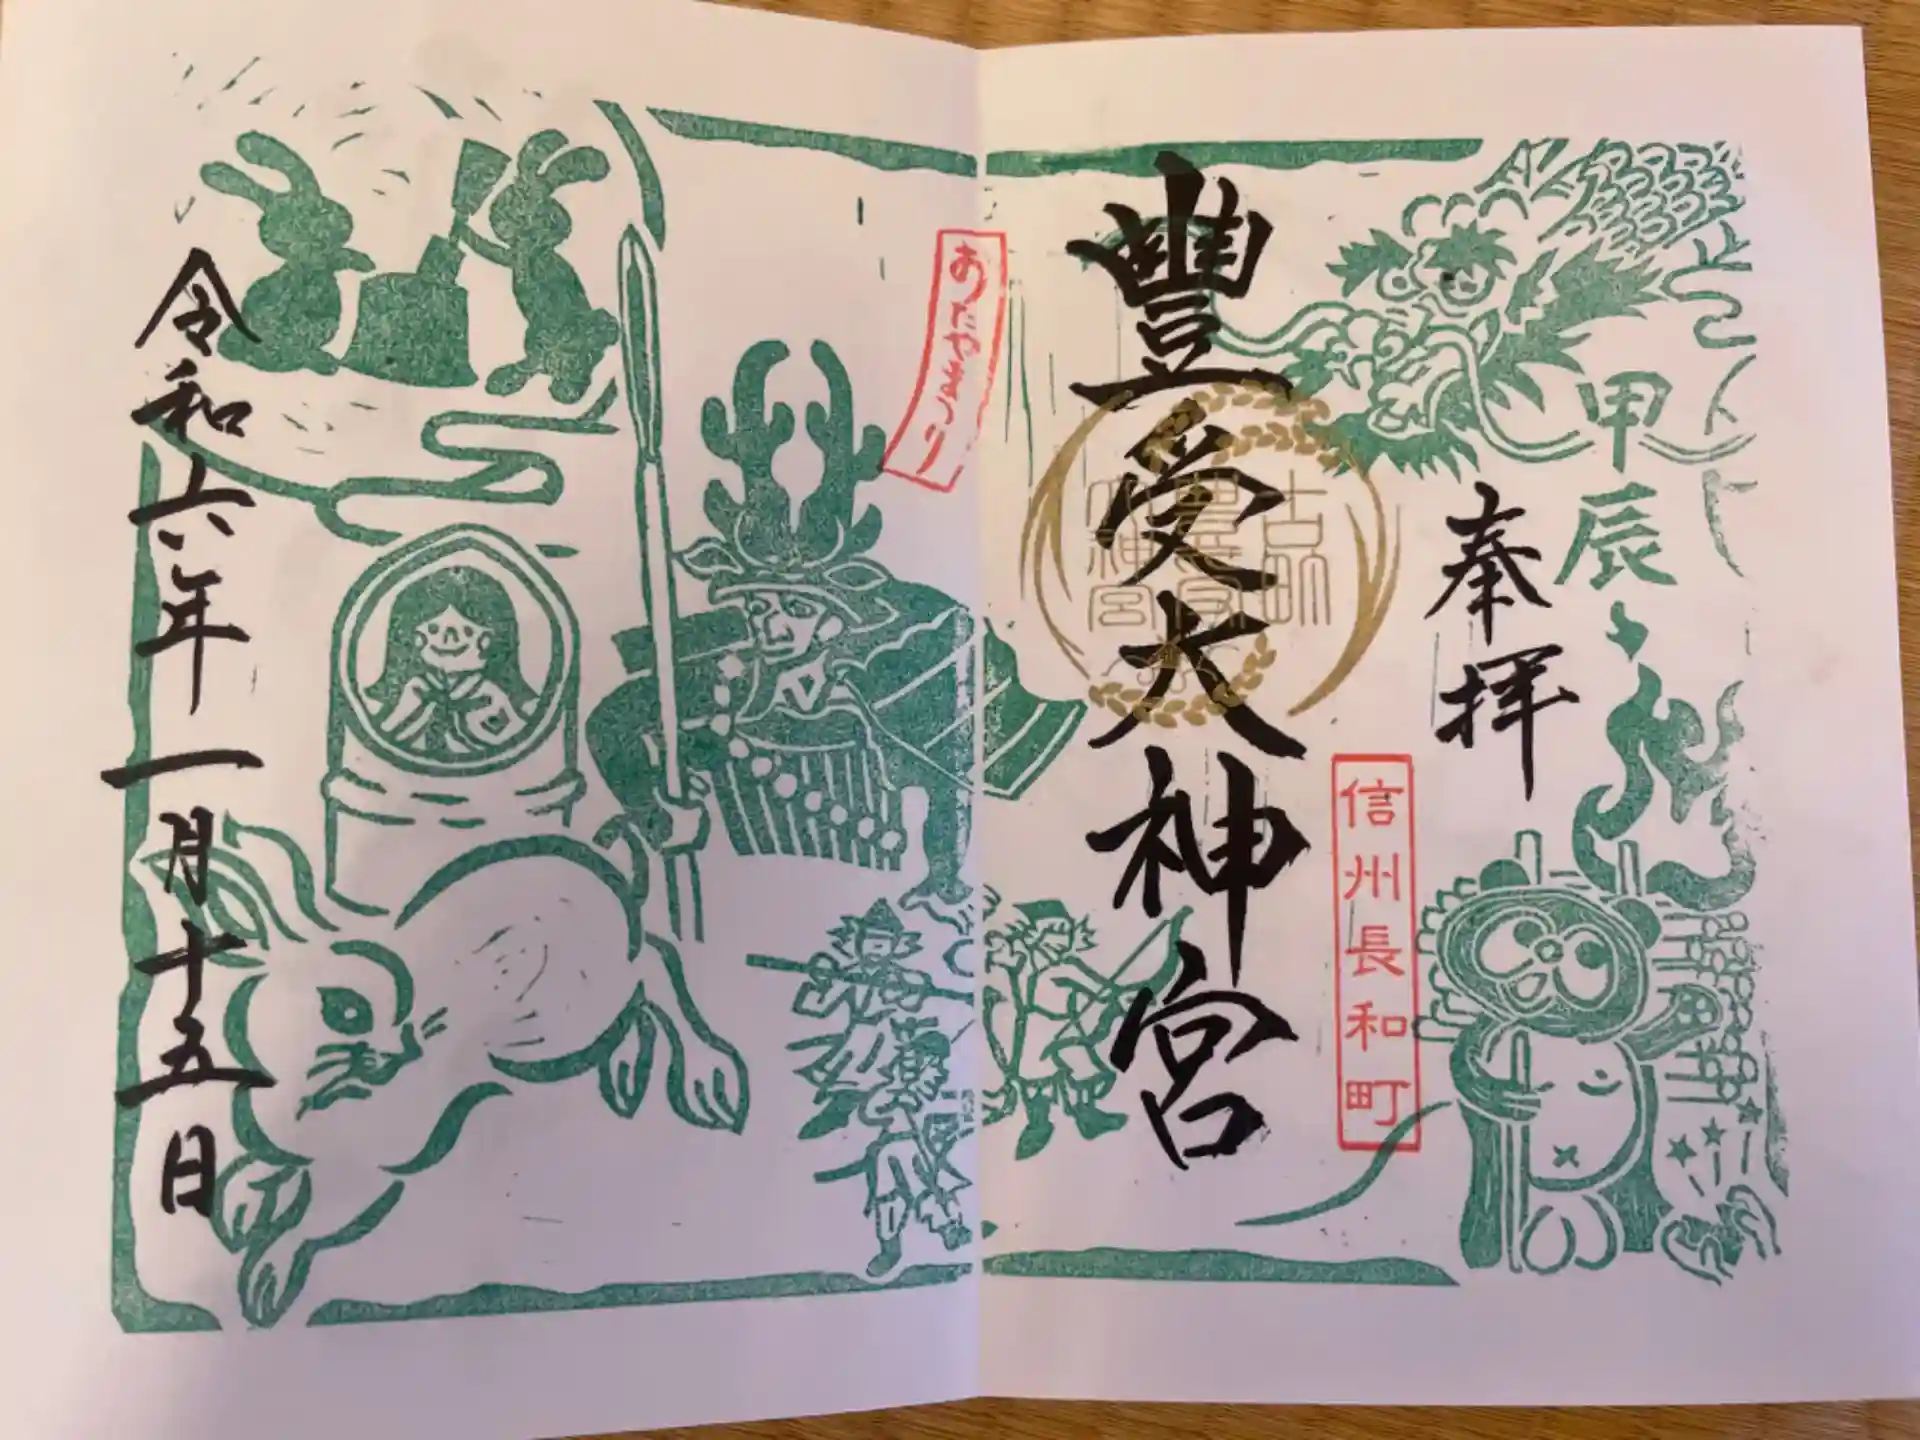 甲辰
奉拝
信州長和町
豊受大神宮
おたやまつり
令和六年一月十五日